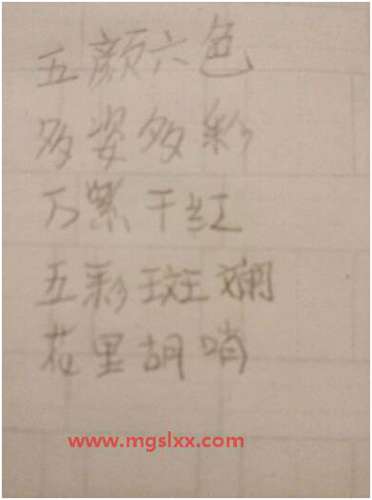 五颜六色
多姿多彩
万紫千红
五彩斑斓
花里胡哨
www.mgslxx.com